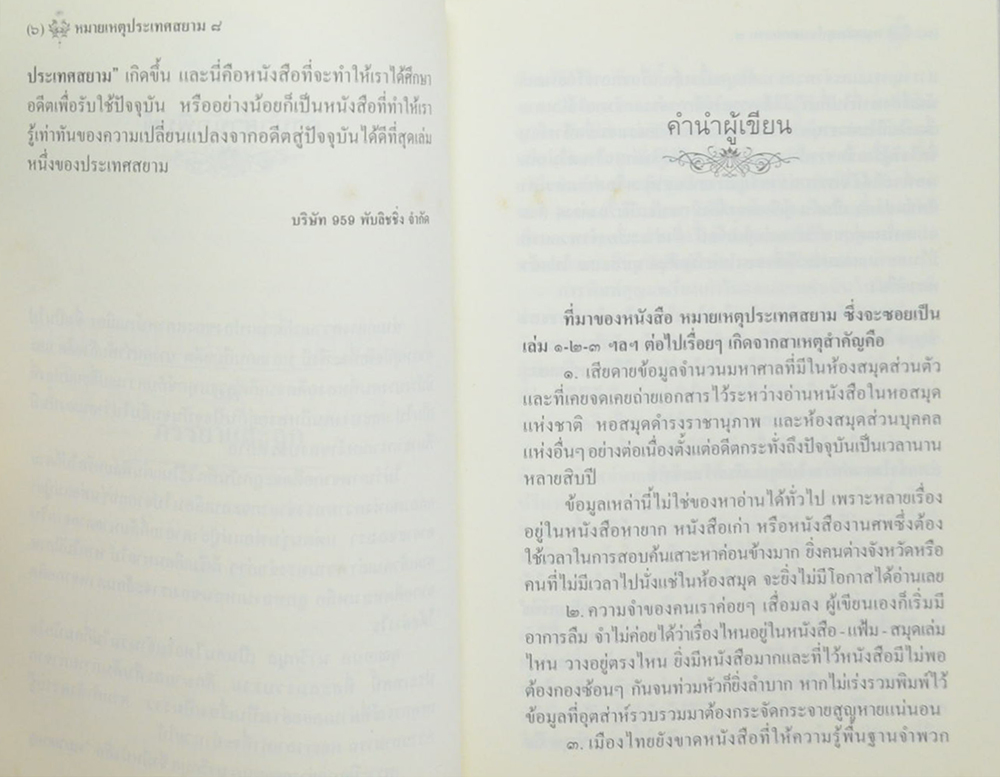 (๖) หมายเหตุประเทศสยาม ๘
ประเทศสยาม” เกิดขึ้น และนี่คือหนังสือที่จะทำให้เราได้ศึกษา
อดีตเพื่อรับใช้ปัจจุบัน หรืออย่างน้อยก็เป็นหนังสือที่ทำให้เรา
รู้เท่าทันของความเปลี่ยนแปลงจากอดีตสู่ปัจจุบันได้ดีที่สุดเล่ม
หนึ่งของประเทศสยาม
บริษัท 959 พับลิชชิ่ง จำกัด
คำนำผู้เขียน
ที่มาของหนังสือ หมายเหตุประเทศสยาม ซึ่งจะซอยเป็น
เล่ม ๑-๒-๓ ฯลฯ ต่อไปเรื่อยๆ เกิดจากสาเหตุสำคัญคือ
๑. เสียดายข้อมูลจำนวนมหาศาลที่มีในห้องสมุดส่วนตัว
และที่เคยจดเคยถ่ายเอกสารไว้ระหว่างอ่านหนังสือในหอสมุด
แห่งชาติ หอสมุดดำรงราชานุภาพ และห้องสมุดส่วนบุคคล
แห่งอื่นๆ อย่างต่อเนื่องตั้งแต่อดีตกระทั่งถึงปัจจุบันเป็นเวลานาน
หลายสิบปี
ข้อมูลเหล่านี้ไม่ใช่ของหาอ่านได้ทั่วไป เพราะหลายเรื่อง
อยู่ในหนังสือหายาก หนังสือเก่า หรือหนังสืองานศพซึ่งต้อง
ใช้เวลาในการสอบค้นเสาะหาค่อนข้างมาก ยิ่งคนต่างจังหวัดหรือ
คนที่ไม่มีเวลาไปนั่งแช่ในห้องสมุด จะยิ่งไม่มีโอกาสได้อ่านเลย
๒. ความจำของคนเราค่อยๆ เสื่อมลง ผู้เขียนเองก็เริ่มมี
อาการลืม จำไม่ค่อยได้ว่าเรื่องไหนอยู่ในหนังสือ-แฟ้ม-สมุดเล่ม
ไหน วางอยู่ตรงไหน ยิ่งมีหนังสือมากและที่ไว้หนังสือมีไม่พอ
ต้องกองซ้อนๆ กันจนท่วมหัวก็ยิ่งลำบาก หากไม่เร่งรวมพิมพ์ไว้
ข้อมูลที่อุตส่าห์รวบรวมมาต้องกระจัดกระจายสูญหายแน่นอน
๓. เมืองไทยยังขาดหนังสือที่ให้ความรู้พื้นฐานจำพวก